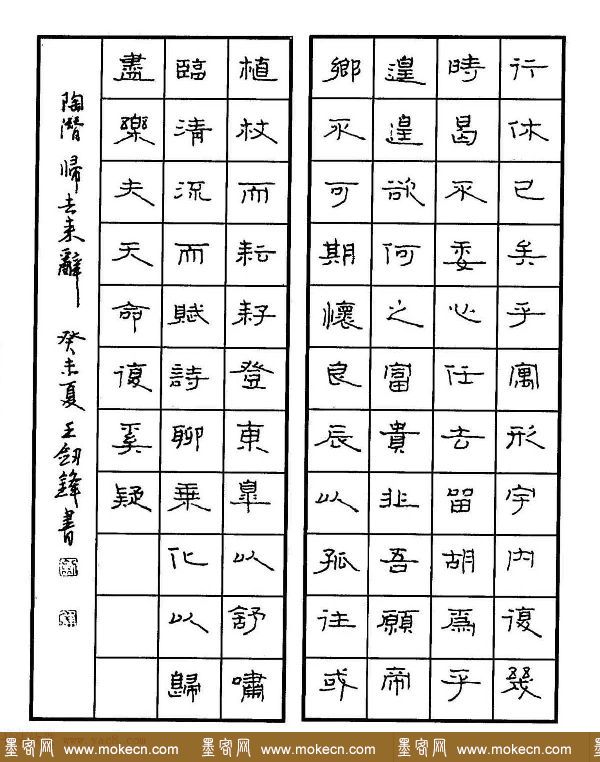 行休已矣乎寓形宇内復幾
時曷不委心任去留胡爲乎
遑遑欲何之富貴非吾願帝
鄉不可期懷良辰以孤往或
植杖而耘耔登東皐以舒嘯
臨清流而賦詩聊乘化以歸
盡樂夫天命復奚疑
陶潛 歸去来辭 癸未夏 王劍鋒書
墨客网 www.mokecn.com 墨客网 www.mokecn.com 墨客网 www.mokecn.com